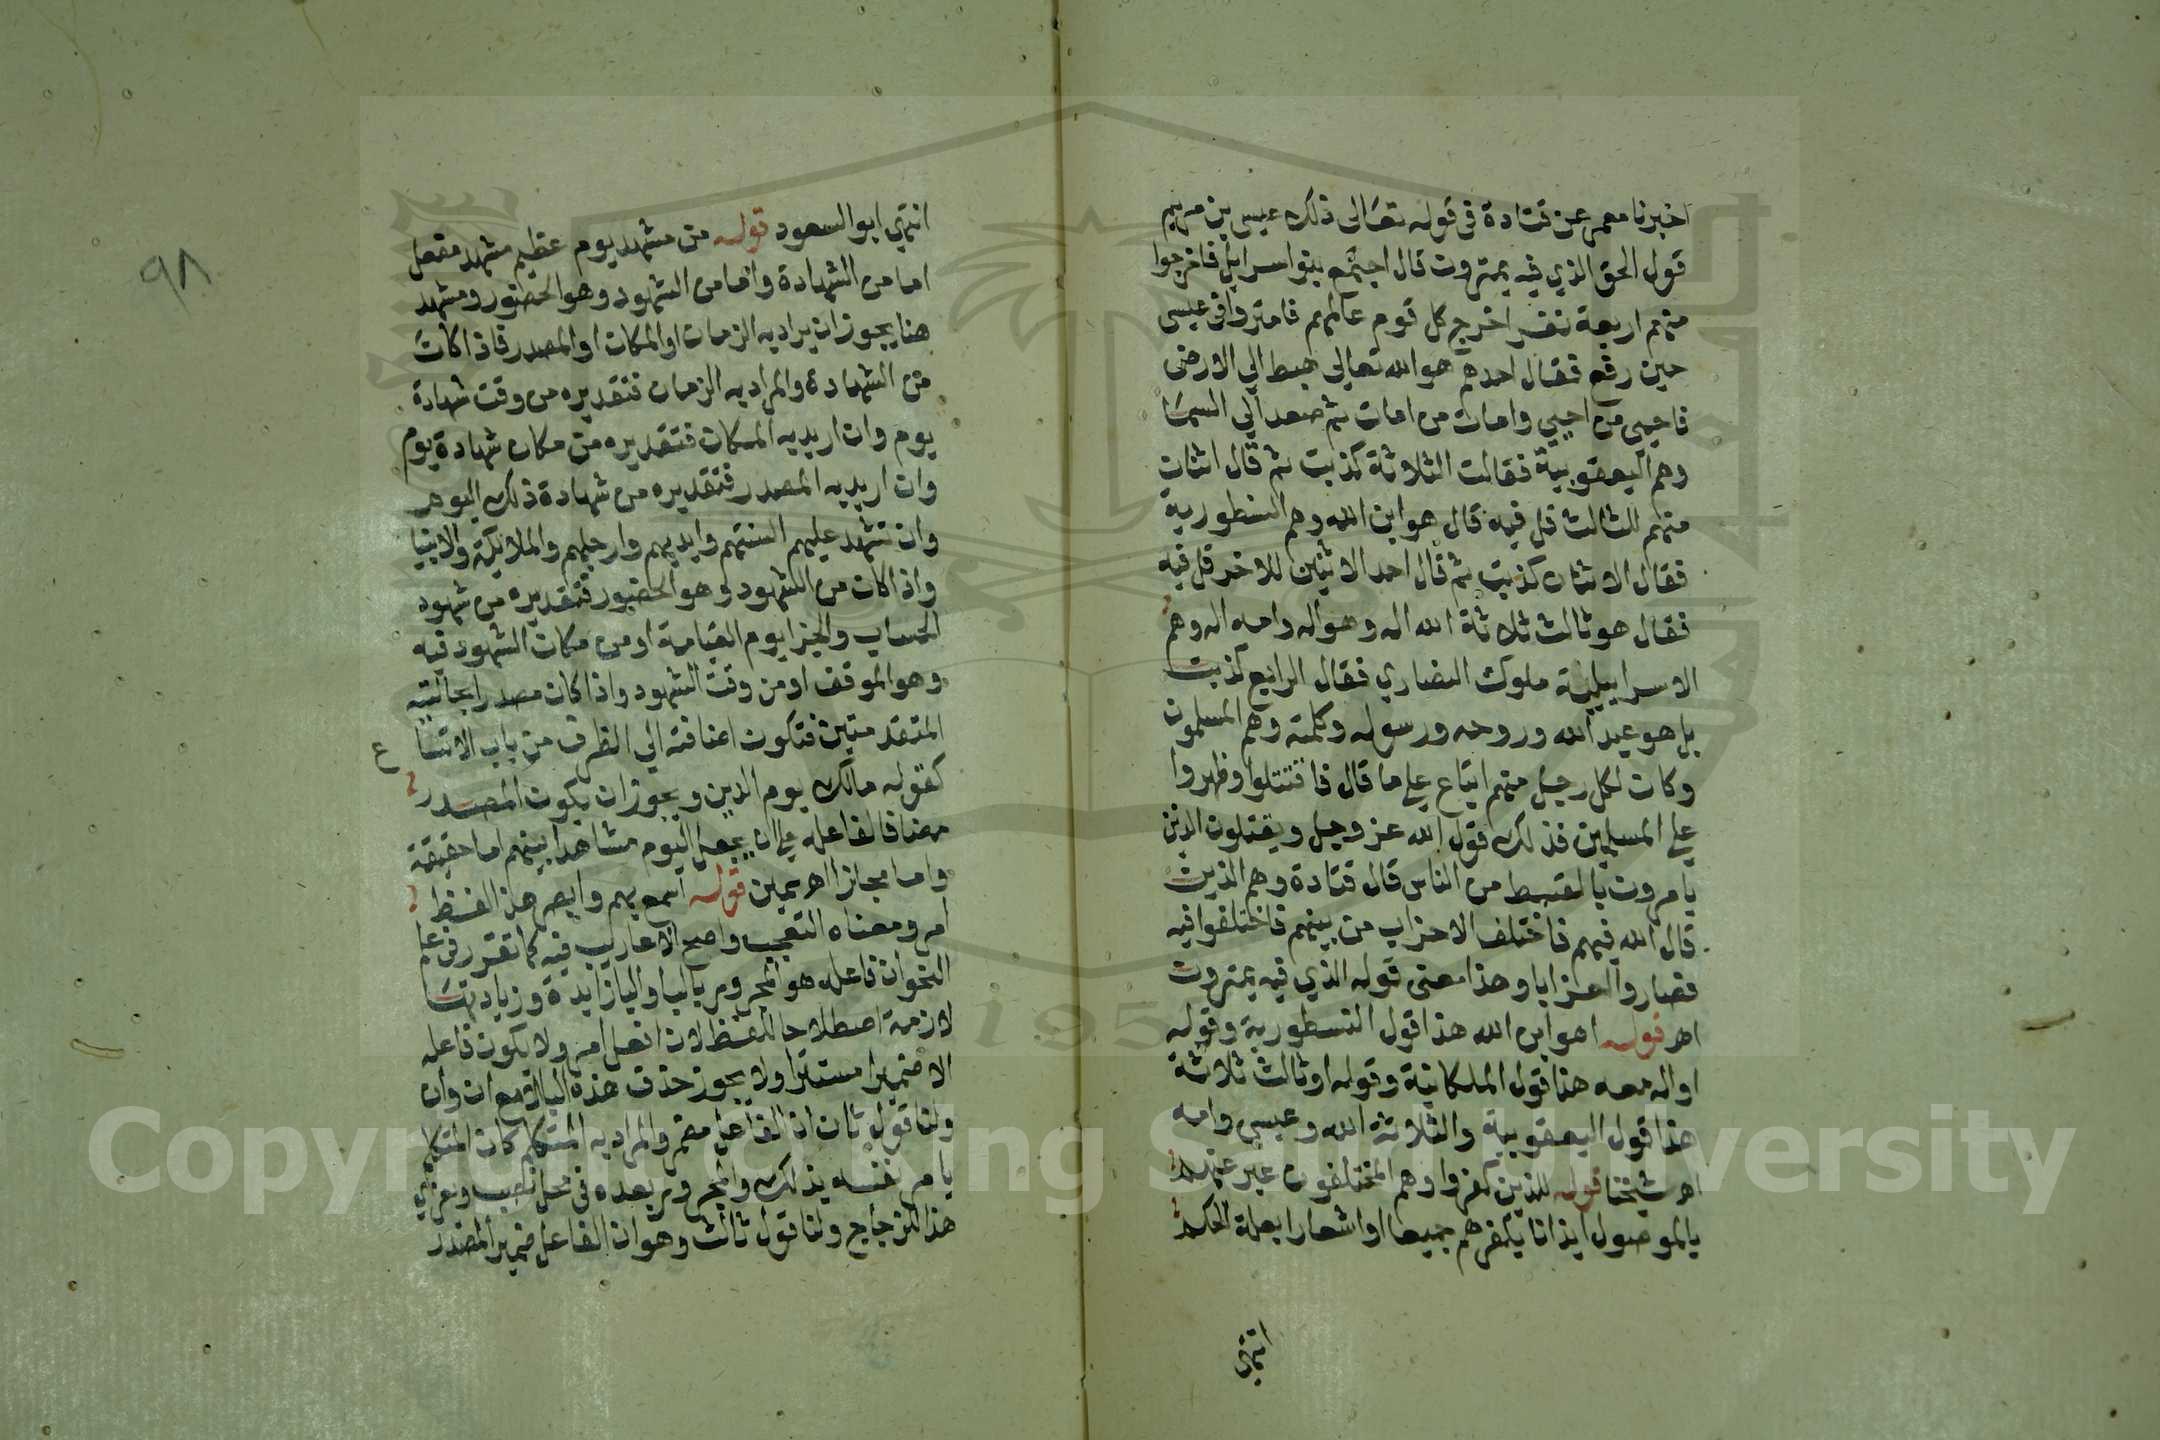 اخبرنا معمر عن قتادة في قوله تعالى ذلك عيسى بن مريم
قول الحق الذي فيه يمترون قال اجتمع بنوا سرايل فاخرجوا
منهم اربعة نفر اخرج كل قوم عالمهم فامتروا في عيسى
حين رفع فقال احدهم هو الله تعالي هبط الي الارض
فاحيى من احيي وامات من امات ثم صعد الي السما
وهم اليعقوبية فقالت الثلاثة كذبت ثم قال اثنان
منهم للثالث قل فيه قال هو ابن الله وهم النسطورية
فقال الاثنان كذبت ثم قال احد الاثنين للاخر قل فيه
فقال هو ثالث ثلاثة الله اله وهو اله وامه اله وهم
الاسرايبلية ملوك النصاري فقال الرابع كذبت
بل هو عبد الله وروحه ورسوله وكلمته وهم المسلمون
وكان لكل رجل منهم اتباع علي ما قال فاقتتلوا وظهروا
علي المسلمين فذلك قول الله عز وجل ويقتلون الذين
يامرون بالقسط من الناس قال قتادة وهم الذين
قال الله فيهم فاختلف الاحزاب من بينهم فاختلفوا فيه
فصاروا احزابا وهذا معنى قوله الذي فيه يمترون
اهـ قوله اهو ابن الله هذا قول النسطورية وقوله
او اله معه هذا قول الملكانية وقوله او ثالث ثلاثة
هذا قول اليعقوبية والثلاثة الله وعيسي وامه
اهـ شيخنا قوله للذين كفروا وهم المختلفون عبر عنهم
بالموصول ايذانا بكفرهم جميعا او اشعارا بعلة الحكم
انتهي
٩٨
انتهي ابو السعود قوله من مشهد يوم عظيم مشهد مفعل
اما من الشهادة واما من الشهود وهو الحضور ومشهد
هنا يجوز ان يراد به الزمان او المكان او المصدر فاذا كان
من الشهادة والمراد به الزمان فتقديره من وقت شهادة
يوم وان اريد به المكان فتقديره من مكان شهادة يوم
وان اريد به المصدر فتقديره من شهادة ذلك اليوم
وان تشهد عليهم السنتهم وايديهم وارجلهم والملايكة والانبيا
واذا كان من الشهود وهو الحضور فتقديره من شهود
الحساب والجزا يوم القيامة او من مكان الشهود فيه
وهو الموقف او من وقت الشهود واذا كان مصدرا بحالتيه
المتقدمتين فتكون اضافته الي الظرف من باب الاتسا ع
كقوله مالك يوم الدين ويجوز ان يكون المصدر
مضافا لفاعله علي ان يجعل اليوم مشاهدا بينهم اما حقيقة
واما مجازا اهـ سمين قوله اسمع بهم وابصر هذا لفظ
امر ومعناه التعجب واصح الاعاريب فيه كما تقرر في علم
النحو ان فاعله هو المجرور بالبا والبا زايدة وزيادتها
لازمة اصطلاحا للفظ لان افعل امر ولا يكون فاعله
الا ضميرا مستترا ولا يجوز حذف هذه البا الا مع ان وان
ولنا قول ثان ان الفاعل مضمر والمراد به المتكلم كان المتكلم
يامر نفسه بذلك والمجرور بعده في محل نصب ويعزي
هذا للزجاج ولنا قول ثالث وهو ان الفاعل ضمير المصدر
Copyright © King Saud University
195